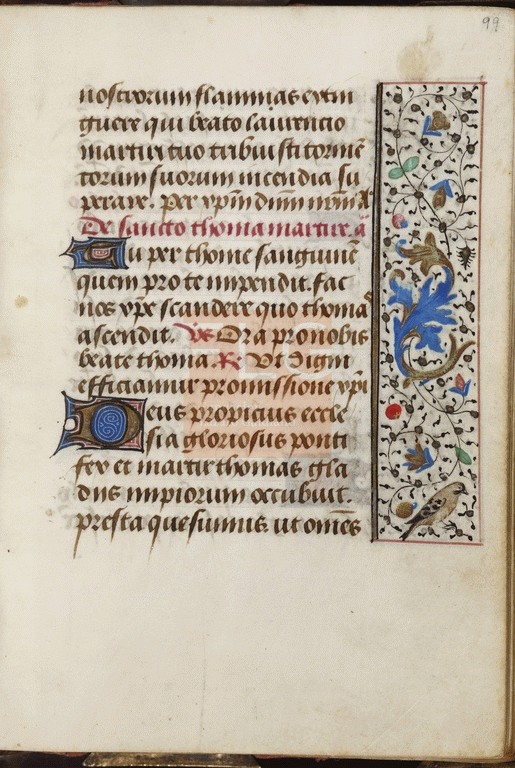 99
nostrorum flammas extin
guere qui beato laurencio
martiri tuo tribuisti tormē
torum suorum incendia su
perare. Per xp̄m dn̄m nr̄m
De sancto thoma martire. ā
Tu per thome sanguinē
quem pro te impendit. fac
nos xp̄e scandere quo thomas
ascendit. Vs Ora pro nobis
beate thoma. R Vt digni
efficiamur promissione xp̄i
Deus propicius eccle
sia gloriosus ponti
fex et martir thomas gla
diis impiorum occubuit.
presta quesumus. ut om̄es